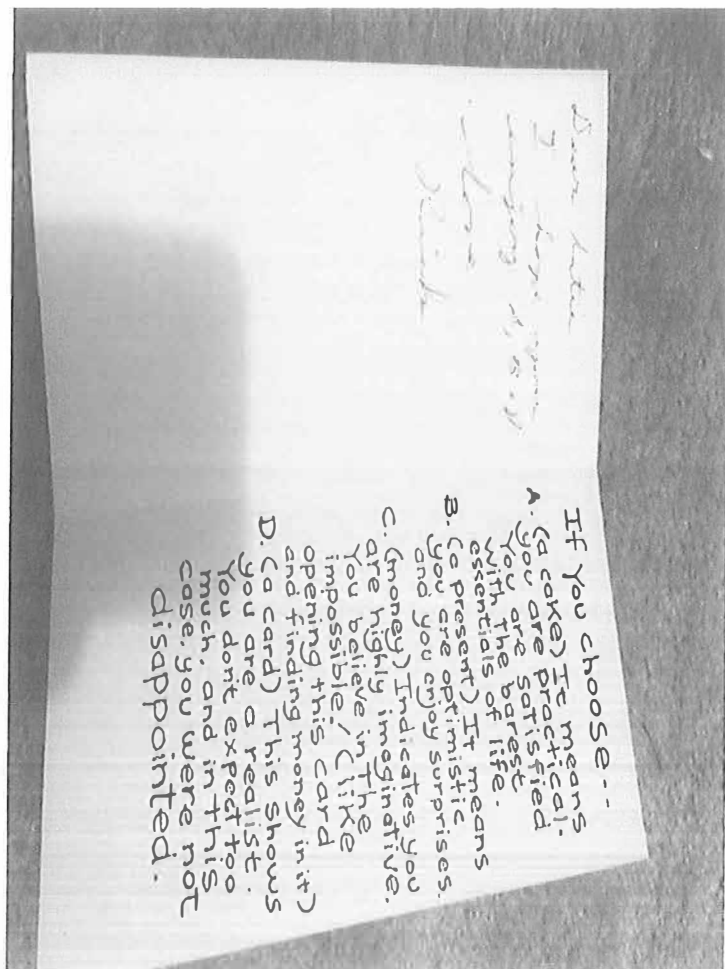 Dear
I hope you
enjoy
love
If you choose--
A. (a cake) It means
you are practical.
You are satisfied
with the barest
essentials of life.
B. (a present) It means
you are optimistic
and you enjoy surprises.
C. (money) Indicates you
are highly imaginative.
You believe in the
impossible. / (like
opening this card
and finding money in it)
D. (a card) This shows
you are a realist.
You dont expect too
much, and in this
case, you were not
disappointed.